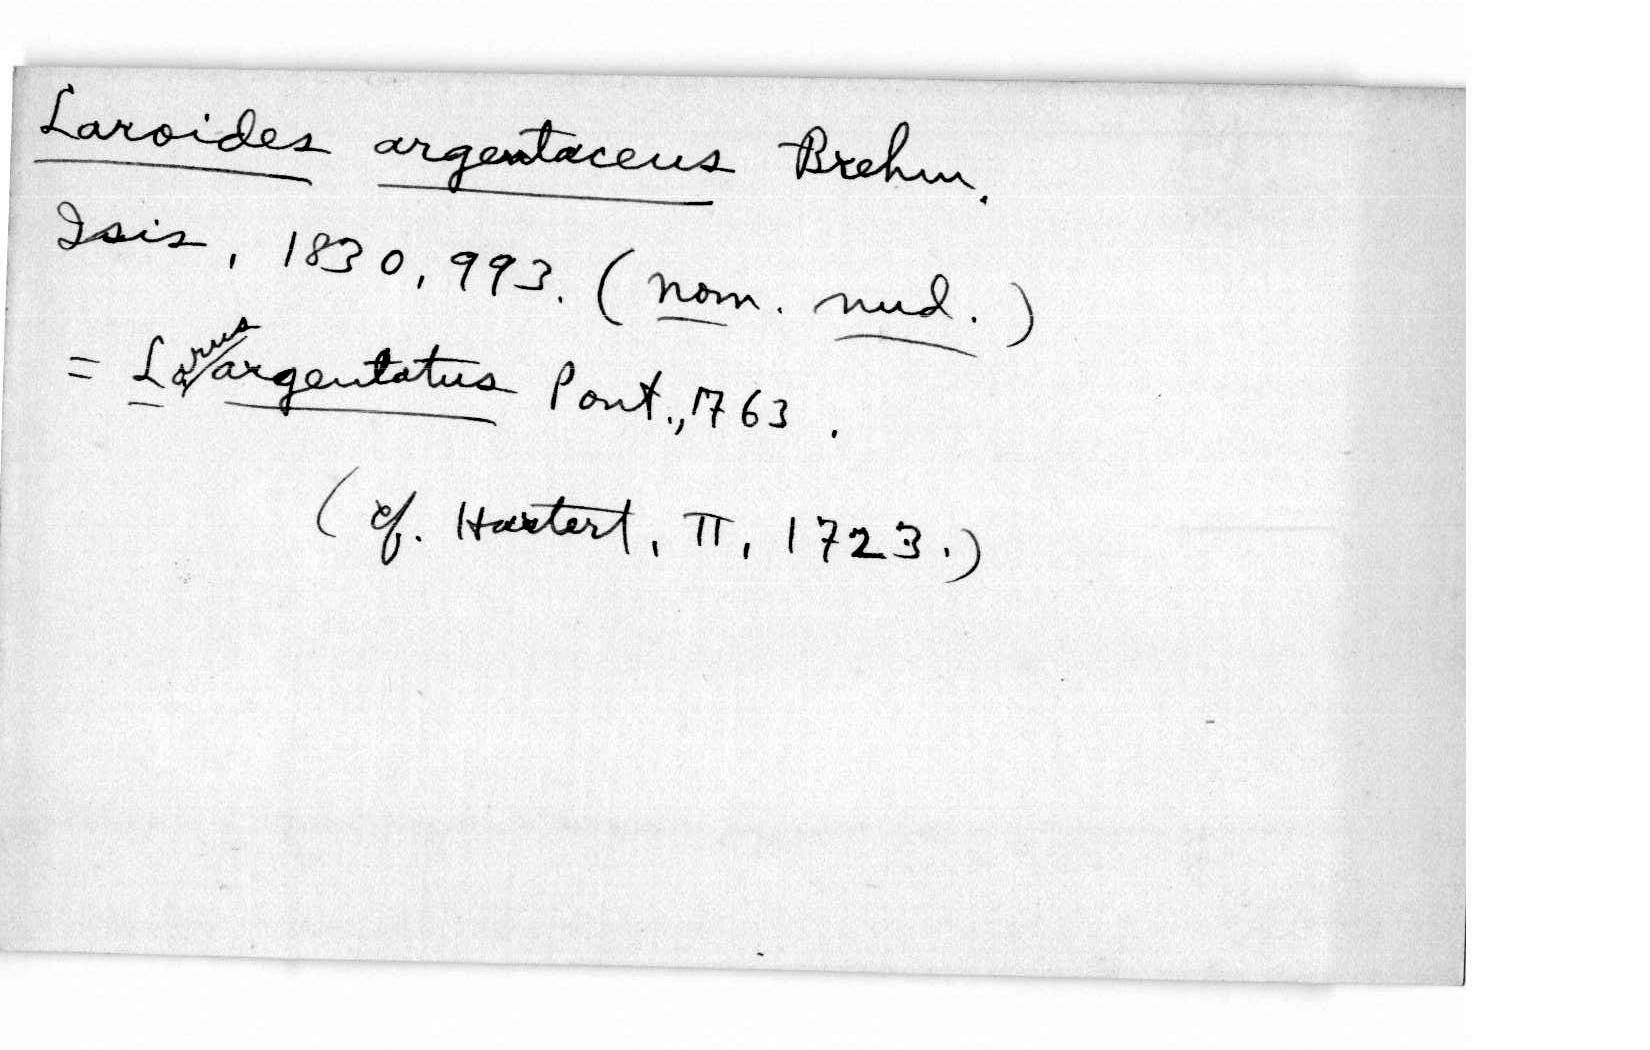 Laroides argentaceus Brehm.
Isis, 1830, 993. (nom. nud.)
= Larus argentatus Pont., 1763.
(cf. Hartert, II, 1723.)